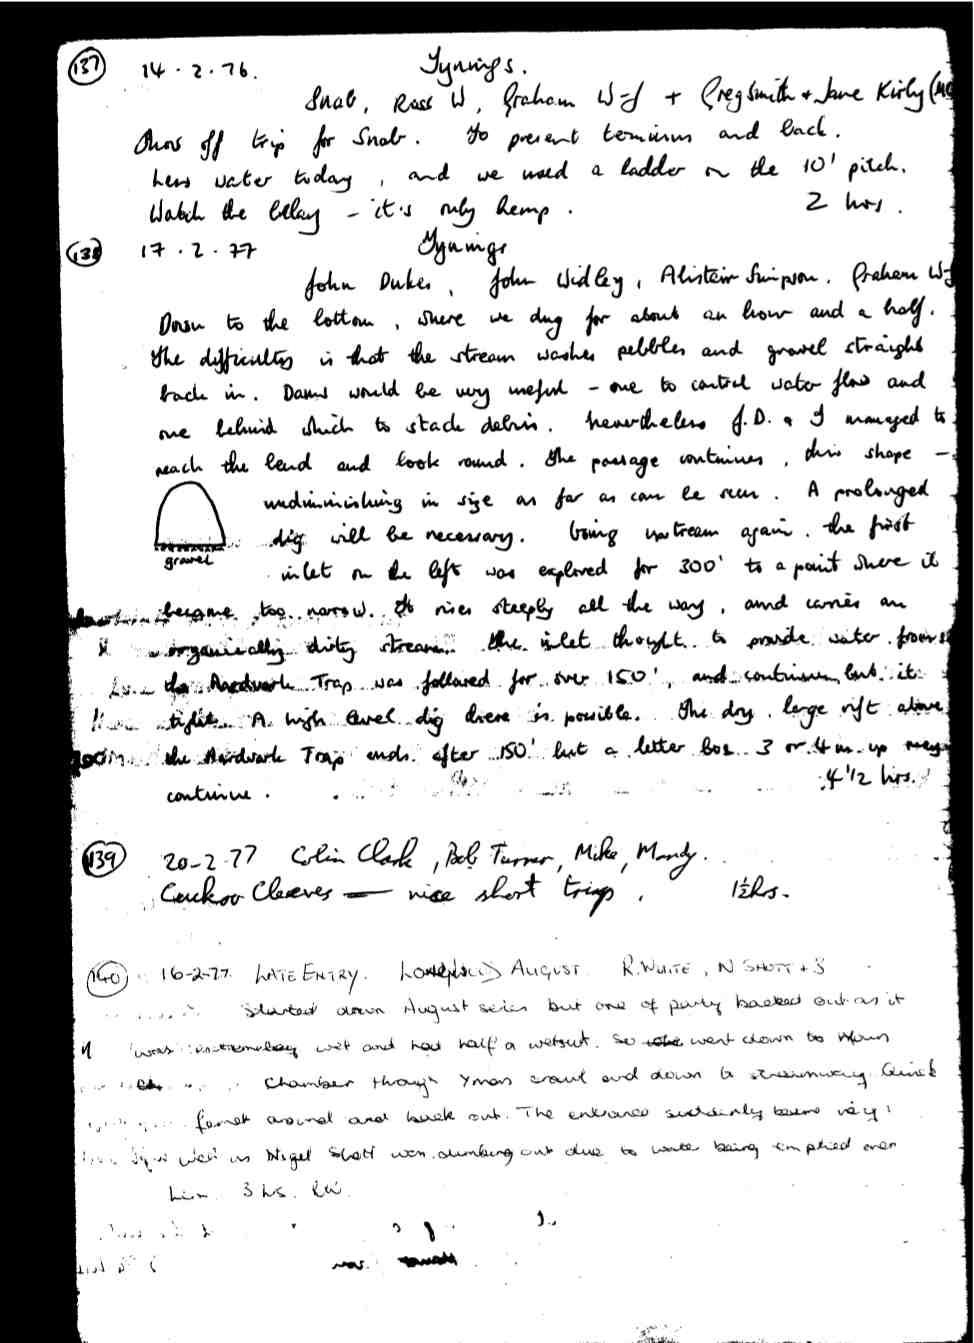 137 14.2.76. Tynings.
Snab, Ross W, Graham W-J + Greg Smith + Jane Kirby
Show off trip for Snab. To present terminus and back.
Less water today, and we used a ladder on the 10' pitch.
Watch the belay - it's only hemp. 2 hrs.
138 17.2.77 Tynings
John Dukes, John Widley, Alistair Simpson, Graham W-J
Down to the bottom, where we dug for about an hour and a half.
The difficulty is that the stream washes pebbles and gravel straight
back in. Dams would be very useful - one to control water flow and
one behind which to stack debris. Nevertheless J.D. & I managed to
reach the bend and look round. The passage continues, this shape -
undiminishing in size as far as can be seen. A prolonged
dig will be necessary. Going upstream again, the first
gravel
inlet on the left was explored for 300' to a point where it
became too narrow. It rises steeply all the way, and carries an
organically dirty stream. The inlet thought to provide water from
the Aardvark Trap was followed for over 150', and continues, but it
tight. A high level dig there is possible. The dry, large rift above
the Aardvark Trap ends after 150' but a letter box 3 or 4 m up may
continue. 4 1/2 hrs.
139 20-2-77 Colin Clark, Bob Turner, Mike, Mandy.
Cuckoo Cleeves — nice short trip. 1½hrs.
140 16-2-77. LATE ENTRY. AUGUST. R. WHITE, N SHOTT + 3
Started down August series but one of party backed out as it
was extremely wet and had half a wetsuit. So went down to Main
Chamber through Yman crawl and down to streamway. Quick
around and back out. The entrance suddenly became very
wet as Nigel Shott was climbing out due to water being emptied over
him. 3 hrs. RW.